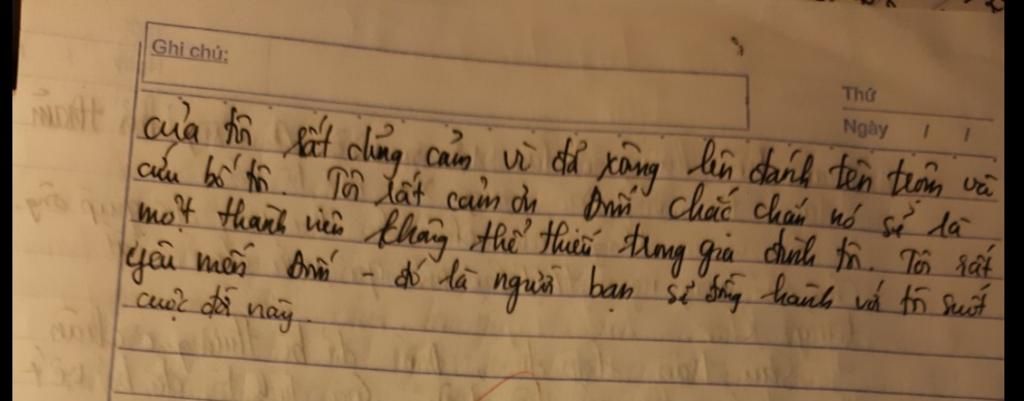 Ghi chú:
Thứ
Ngày / /
của tôi rất dũng cảm vì đã xông lên đánh tên trộm và
cứu bố tôi. Tôi rất cảm ơn chắc chắn nó sẽ là
một thành viên không thể thiếu trong gia đình tôi. Tôi rất
yêu mến - đó là người bạn sẽ đồng hành với tôi suốt
cuộc đời này.